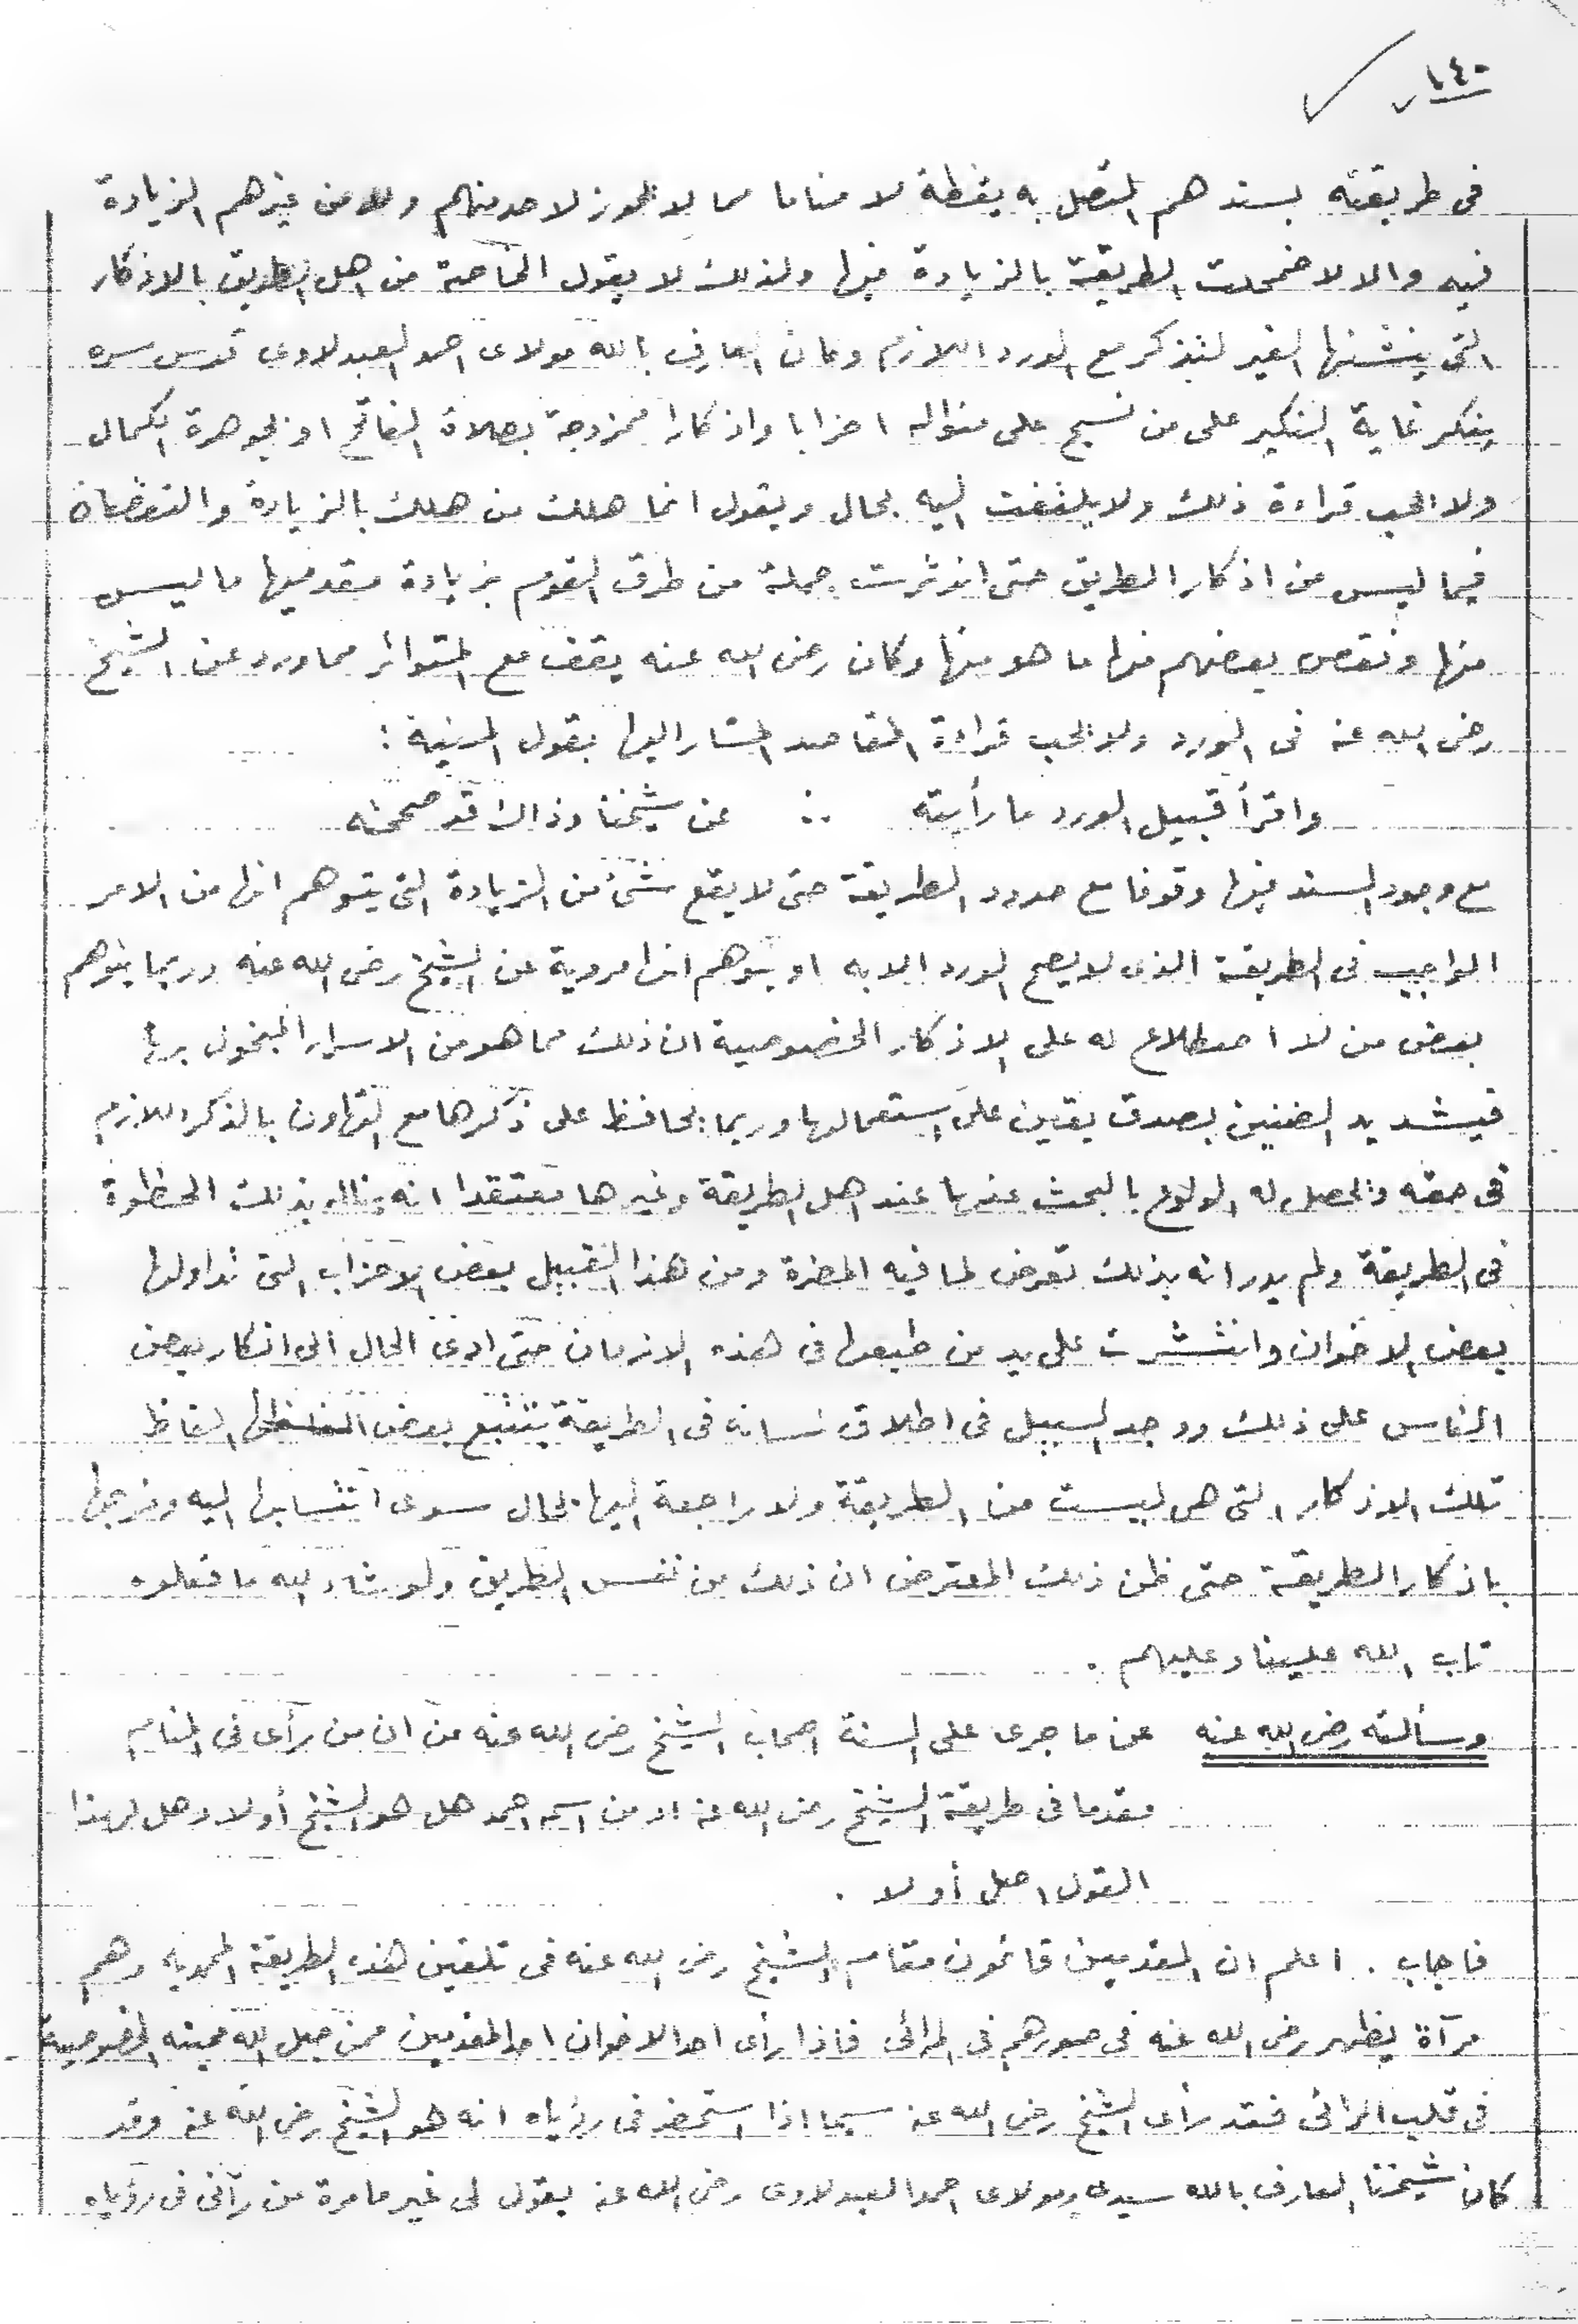 ١٤٠
فى طريقته بسندهم المتصل به يقظة لا مناما مما لا يجوز لاحد منهم ولا من غيرهم الزيادة
فيه والا لاضمحلت الطريقة بالزيادة فيها ولذلك لا يقول الخاصة من اهل الطريق بالاذكار
التى ينشئها الغير لتذكر مع الورد اللازم وكان العارف بالله مولاى احمد العبدلاوى قدس سره
ينكر غاية النكير على من نسج على منواله احزابا واذكارا ممزوجة بصلاة الفاتح او بجوهرة الكمال
ولا يحب قراءة ذلك ولا يلتفت اليه بحال ويقول انما هلك من هلك بالزيادة والنقصان
فيما ليس من اذكار الطريق حتى اندثرت جملة من طرق القوم بزيادة مقدميها ما ليس
منها ونقص بعضهم منها ما هو منها وكان رضى الله عنه يقف مع المتواتر مما ورد عن الشيخ
رضى الله عنه فى الورد ولا يحب قراءة المقاصد المشار اليها بقول المنية :
واقرأ قبيل الورد ما رأيته ∴ عن شيخنا وذاك قد صححته
مع وجود السند فيها وقوفا مع حدود الطريقة حتى لا يقع شئ من الزيادة التى يتوهم انها من الامر
الواجب فى الطريقة الذى لا يصح الورد الا به او يتوهم انها مروية عن الشيخ رضى الله عنه وربما يتوهم
بعض من لا اضطلاع له على الاذكار الخصوصية ان ذلك مما هو من الاسرار المبخول بها
فيشد يد الضنين بصدق يقين على استعمالها وربما يحافظ على ذكرها مع التهاون بالذكر اللازم
فى حقه ويحصل له الولوع بالبحث عنها عند اهل الطريقة وغيرها معتقدا انه ينال بذلك الحظوة
فى الطريقة ولم يدر انه بذلك تعرض لما فيه المضرة ومن هذا القبيل بعض الاحزاب التى تداولها
بعض الاخوان وانتشرت على يد من طبعها فى هذه الازمان حتى ادى الحال الى انكار بعض
الناس على ذلك ووجد السبيل فى اطلاق لسانه فى الطريقة بتتبع بعض الفاظ
تلك الاذكار التى هى ليست من الطريقة ولا راجعة اليها بحال سوى انتسابها اليه ومزجها
باذكار الطريقة حتى ظن ذلك المعترض ان ذلك من نفس الطريق ولو شاء الله ما فعلوه
تاب الله علينا وعليهم .
وسألته رضى الله عنه عن ما جرى على السنة اصحاب الشيخ رضى الله عنه من ان من رأى فى المنام
مقدما فى طريقة الشيخ رضى الله عنه او من اسمه احمد هل هو الشيخ أولا وهل لهذا
القول اصل أو لا .
فاجاب . اعلم ان المقدمين قائمون مقام الشيخ رضى الله عنه فى تلقين هذه الطريقة المحمدية وهم
مرآة يظهر رضى الله عنه فى صورهم فى المرائى فاذا رأى احد الاخوان احد المقدمين ممن جعل الله محبته الخصوصية
فى قلب الرائى فقد رأى الشيخ رضى الله عنه سيما اذا استحضر فى رؤياه انه هو الشيخ رضى الله عنه وقد
كان شيخنا العارف بالله سيدى ومولاى احمد العبدلاوى رضى الله عنه يقول لى غير ما مرة من رآنى فى رؤياه